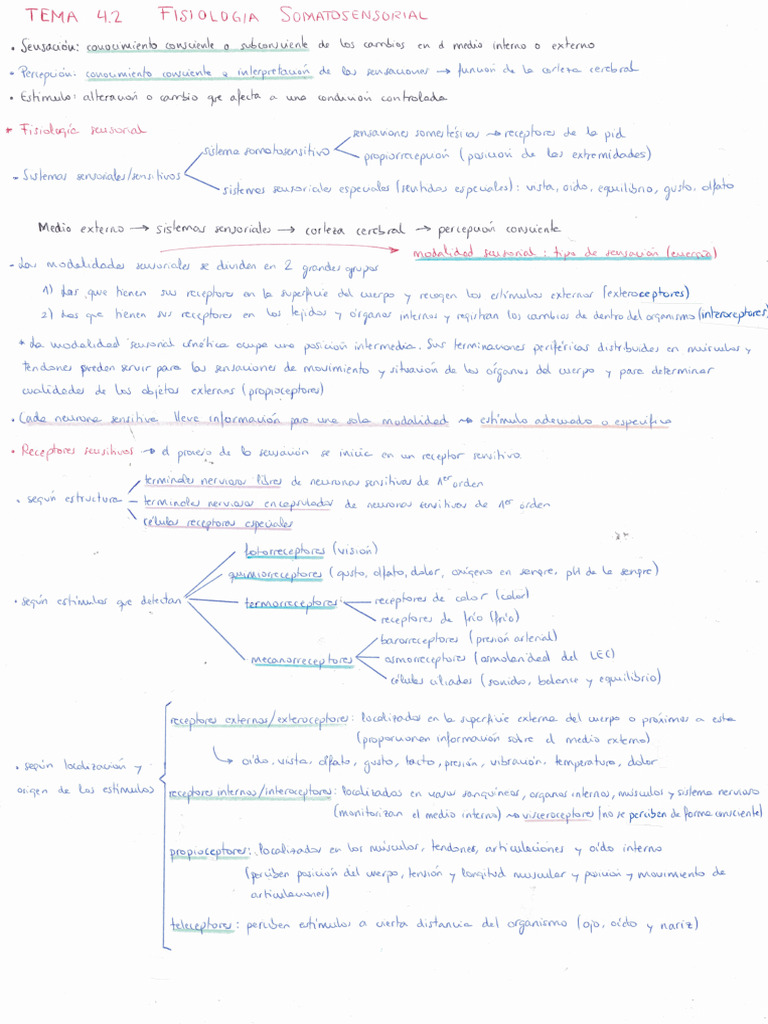 TEMA 4.2 FISIOLOGIA SOMATOSENSORIAL
• Sensación: conocimiento consciente o subconsciente de los cambios en el medio interno o externo
• Percepción: conocimiento consciente e interpretación de las sensaciones → función de la corteza cerebral
• Estímulo: alteración o cambio que afecta a una condición controlada
* Fisiología sensorial
sensaciones somestésicas → receptores de la piel
sistema somatosensitivo
propiorrecepción (posición de las extremidades)
- Sistemas sensoriales/sensitivos
sistemas sensoriales especiales (sentidos especiales): vista, oido, equilibrio, gusto, olfato
Medio externo → sistemas sensoriales → corteza cerebral → percepción consciente
modalidad sensorial: tipo de sensación (energía)
- Las modalidades sensoriales se dividen en 2 grandes grupos
1) Las que tienen sus receptores en la superficie del cuerpo y recogen los estímulos externos (exteroceptores)
2) Las que tienen sus receptores en los tejidos y órganos internos y registran los cambios de dentro del organismo (interoceptores)
* La modalidad sensorial cinética ocupa una posición intermedia. Sus terminaciones periféricas distribuidas en músculos y
tendones pueden servir para las sensaciones de movimiento y situación de los órganos del cuerpo y para determinar
cualidades de los objetos externos (propioceptores)
• Cada neurona sensitiva lleva información para una sola modalidad → estímulo adecuado o específico
• Receptores sensitivos → el proceso de la sensación se inicia en un receptor sensitivo.
terminales nerviosas libres de neuronas sensitivas de 1er orden
• según estructura
terminales nerviosas encapsuladas de neuronas sensitivas de 1er orden
células receptoras especiales
fotorreceptores (visión)
quimiorreceptores (gusto, olfato, dolor, oxígeno en sangre, pH de la sangre)
• según estímulos que detectan
termorreceptores
receptores de calor (calor)
receptores de frío (frío)
mecanorreceptores
barorreceptores (presión arterial)
osmorreceptores (osmolaridad del LEC)
células ciliadas (sonido, balance y equilibrio)
receptores externos/exteroceptores: localizados en la superficie externa del cuerpo o próximos a esta
(proporcionan información sobre el medio externo)
→ oído, vista, olfato, gusto, tacto, presión, vibración, temperatura, dolor
• según localización y
origen de los estímulos
receptores internos/interoceptores: localizados en vasos sanguíneos, órganos internos, músculos y sistema nervioso
(monitorizan el medio interno) → visceroceptores (no se perciben de forma consciente)
propioceptores: localizados en los músculos, tendones, articulaciones y oído interno
(perciben posición del cuerpo, tensión y longitud muscular y posición y movimiento de
articulaciones)
teleceptores: perciben estímulos a cierta distancia del organismo (ojo, oído y nariz)